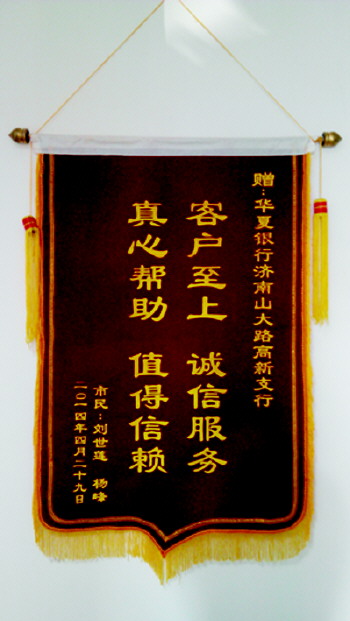 赠：华夏银行济南山大路高新支行
客户至上 诚信服务
真心帮助 值得信赖
市民：刘世莲 杨峰
二〇一四年四月二十九日